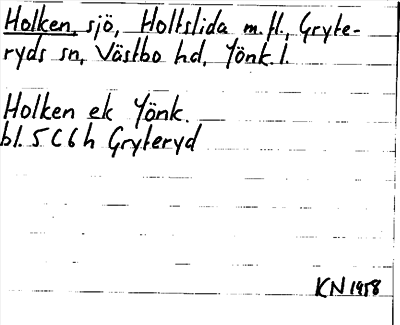 Holken, sjö, Holtslida m.fl., Gryte-
ryds sn, Västbo hd, Jönk. l.
Holken ek Jönk.
bl. 5 C 6 h Gryteryd
KN 1958